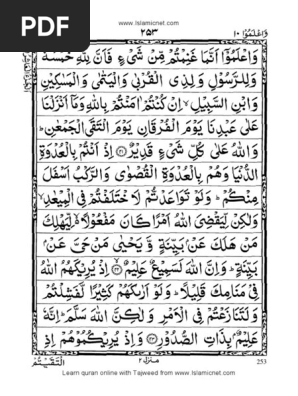 PDF
www.Islamicnet.com
واعلموا ١٠
٢٥٣
وَاعْلَمُوْۤا اَنَّمَا غَنِمْتُمْ مِّنْ شَیْءٍ فَاَنَّ لِلّٰهِ خُمُسَهٗ
وَلِلرَّسُوْلِ وَلِذِی الْقُرْبٰی وَالْیَتٰمٰی وَالْمَسٰكِیْنِ
وَابْنِ السَّبِیْلِ ۙ اِنْ كُنْتُمْ اٰمَنْتُمْ بِاللّٰهِ وَمَاۤ اَنْزَلْنَا
عَلٰی عَبْدِنَا یَوْمَ الْفُرْقَانِ یَوْمَ الْتَقَی الْجَمْعٰنِ ؕ
وَاللّٰهُ عَلٰی كُلِّ شَیْءٍ قَدِیْرٌ ﴿۴۱﴾ اِذْ اَنْتُمْ بِالْعُدْوَةِ
الدُّنْیَا وَهُمْ بِالْعُدْوَةِ الْقُصْوٰی وَالرَّكْبُ اَسْفَلَ
مِنْكُمْ ؕ وَلَوْ تَوَاعَدْتُّمْ لَاخْتَلَفْتُمْ فِی الْمِیْعٰدِ ۙ
وَلٰكِنْ لِّیَقْضِیَ اللّٰهُ اَمْرًا كَانَ مَفْعُوْلًا ۙ لِّیَهْلِكَ
مَنْ هَلَكَ عَنْۢ بَیِّنَةٍ وَّیَحْیٰی مَنْ حَیَّ عَنْۢ
بَیِّنَةٍ ؕ وَاِنَّ اللّٰهَ لَسَمِیْعٌ عَلِیْمٌ ﴿۴۲﴾ اِذْ یُرِیْكَهُمُ اللّٰهُ
فِیْ مَنَامِكَ قَلِیْلًا ؕ وَلَوْ اَرٰىكَهُمْ كَثِیْرًا لَّفَشِلْتُمْ
وَلَتَنَازَعْتُمْ فِی الْاَمْرِ وَلٰكِنَّ اللّٰهَ سَلَّمَ ؕ اِنَّهٗ
عَلِیْمٌۢ بِذَاتِ الصُّدُوْرِ ﴿۴۳﴾ وَاِذْ یُرِیْكُمُوْهُمْ اِذِ
الْتَقَیْتُمْ
منزل ٢
253
Learn quran online with Tajweed from www.Islamicnet.com